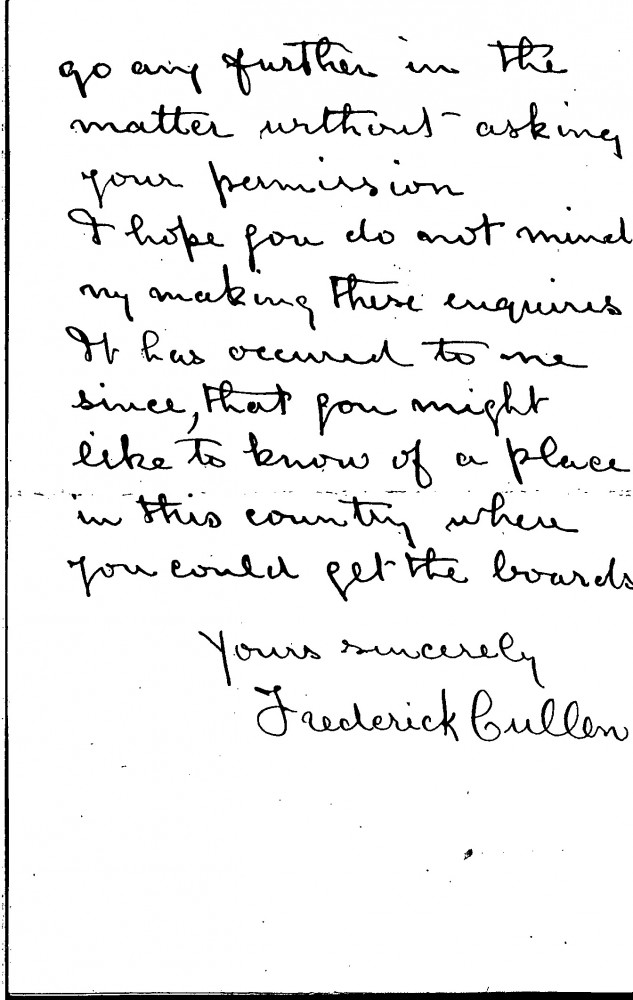 go any further in the
matter without asking
your permission
I hope you do not mind
my making these enquires
It has occured to me
since, that you might
like to know of a place
in this country where
you could get the boards
Yours sincerely
Frederick Cullen